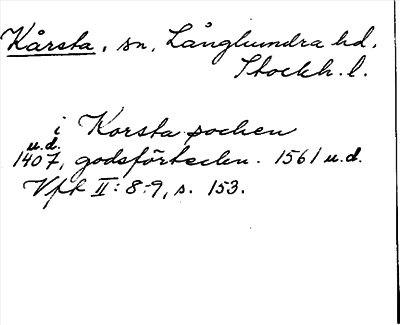 Kårsta, sn, Långhundra hd,
Stockh. l.
i Korsta sochen
u.d.
1407, godsförteckn. 1561 u.d.
Vfl II: 8-9, s. 153.